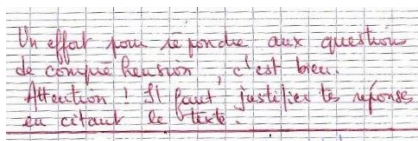 Un effort pour répondre aux questions
de compréhension, c'est bien.
Attention ! Il faut justifier tes réponses
en citant le texte.